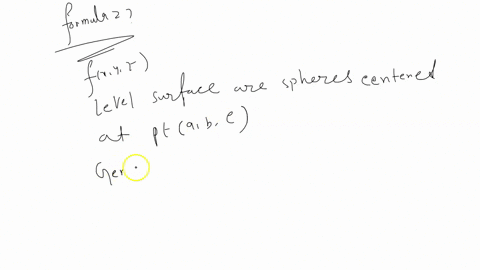 formula ??
f(x,y,z)
Level surface are spheres centered
at pt (a, b, c)
Ger